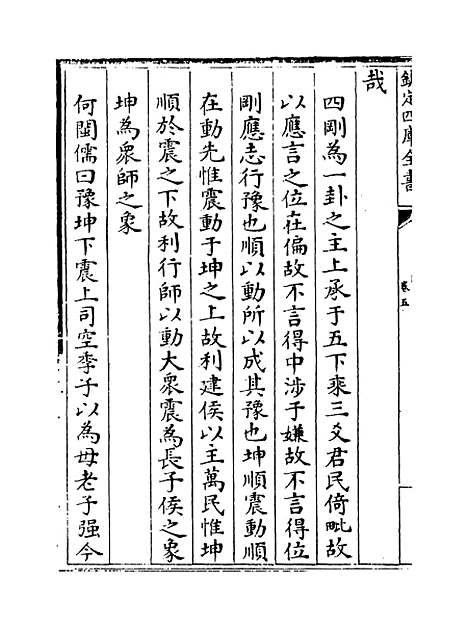 欽定四庫全書
卷五
哉
四剛為一卦之主上承于五下乘三爻君民倚毗故
以應言之位在偏故不言得中涉于嫌故不言得位
剛應志行豫也順以動所以成其豫也坤順震動順
在動先惟震動于坤之上故利建侯以主萬民惟坤
順於震之下故利行師以動大衆震為長子侯之象
坤為衆師之象
何閩儒曰豫坤下震上司空季子以為母老子强今